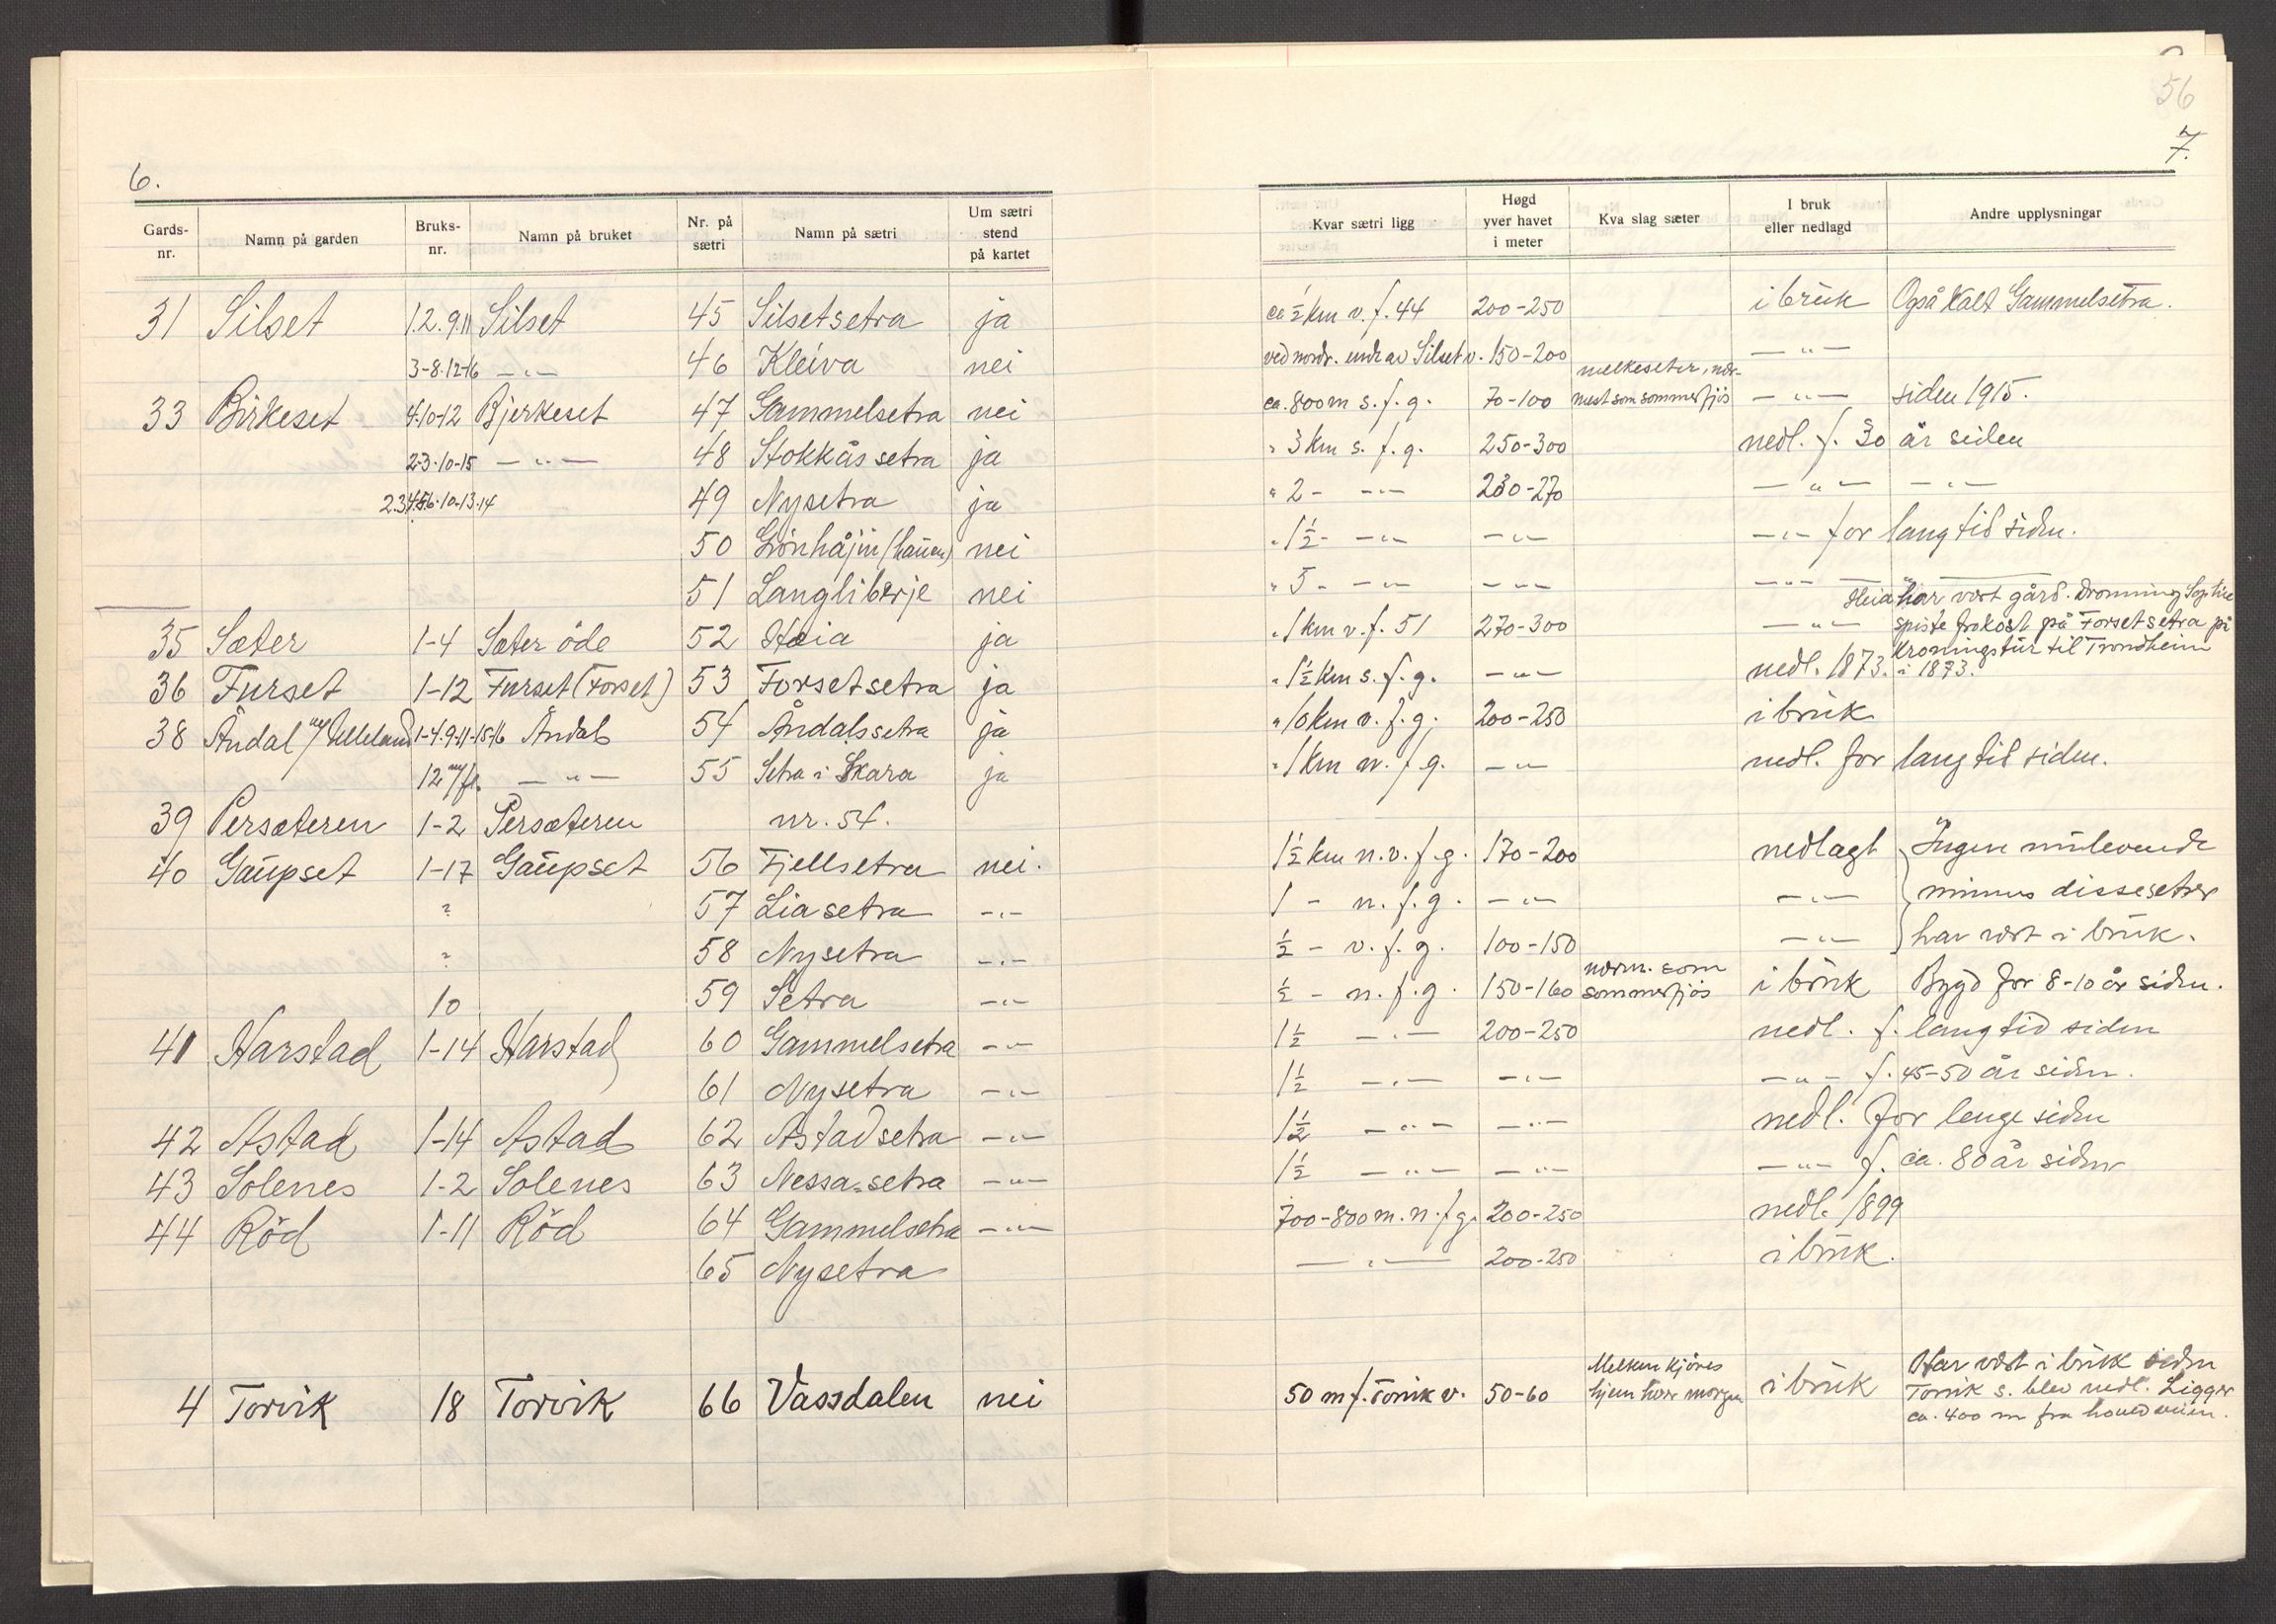 6.
Gards-nr. Namn på garden Bruks-nr. Namn på bruket Nr. på sætri Namn på sætri Um sætri stend på kartet
31 Silset 1.2.9.11 Silset 45 Silsetsetra ja
3-8.12-16 -"- 46 Kleiva nei
33 Birkeset 4.10-12 Bjerkeset 47 Gammelsetra nei
2-3.10-15 -"- 48 Stokkåssetra ja
2.3.4.5.6.10.13.14 49 Nysetra ja
50 nei
51 Langliberje nei
35 Sæter 1-4 Sæter öde 52 Heia ja
36 Furset 1-12 Furset (Forset) 53 Forsetsetra ja
38 Åndal 1-4.9-11-15-16 Åndal 54 Åndalssetra ja
12 -"- 55 Setra i Skara ja
39 Persæteren 1-2 Persæteren nr. 54.
40 Gaupset 1-17 Gaupset 56 Fjellsetra nei.
? 57 Liasetra -"-
? 58 Nysetra -"-
10 59 Setra -"-
41 Harstad 1-14 Harstad 60 Gammelsetra -"-
61 Nysetra -"-
42 Astad 1-14 Astad 62 Astadsetra -"-
43 Solenes 1-2 Solenes 63 Nessa-setra -"-
44 Röd 1-11 Röd 64 Gammelsetra -"-
65 Nysetra
4 Torvik 18 Torvik 66 Vassdalen nei
56
7.
Kvar sætri ligg Høgd yver havet i meter Kva slag sæter I bruk eller nedlagd Andre upplysningar
ca ½ km v. f. 44 200-250 i bruk Også kalt Gammelsetra.
ved nordr. ende av Silsetv. 150-200 -"-
ca. 800 m s. f. g. 70-100 melkeseter, nær-mest som sommerfjös -"- siden 1915.
" 3 km s. f. g. 250-300 nedl. f. 30 år siden
" 2 - -"- 230-270 -"- -"-
" 1½ - -"- -"- -"- for lang tid siden.
" 5 - -"- -"- -"- -"-
" 1 km v. f. 51 270-300 -"- Heia har vært gård. Dronning Sophie
spiste frokost på Forsetsetra på
kroningstur til Trondheim
" 1½ km s. f. g. -"- nedl. 1873. i 1873.
" 10 km v. f. g. 200-250 i bruk
" 1 km n. f. g. -"- nedl. for lang tid siden.
1½ km n.v. f. g. 170-200 nedlagt Ingen nulevende
1 - n. f. g. -"- -"- minnes disse setrer
½ - v. f. g. 100-150 -"- har vært i bruk.
½ - n. f. g. 150-160 nærm. som sommerfjös i bruk Bygd for 8-10 år siden.
1½ -"- 200-250 nedl. f. lang tid siden
1½ -"- -"- -"- f. 45-50 år siden.
1½ -"- -"- nedl. for lenge siden
1½ -"- -"- -"- f. ca. 80 år siden
700-800 m. n. f. g. 200-250 nedl. 1899
-"- 200-250 i bruk.
50 m f. Torvik v. 50-60 Melken kjöres hjem hver morgen i bruk Har vært i bruk siden
Torvik s. blev nedl. Ligger
ca. 400 m fra hovedveien.